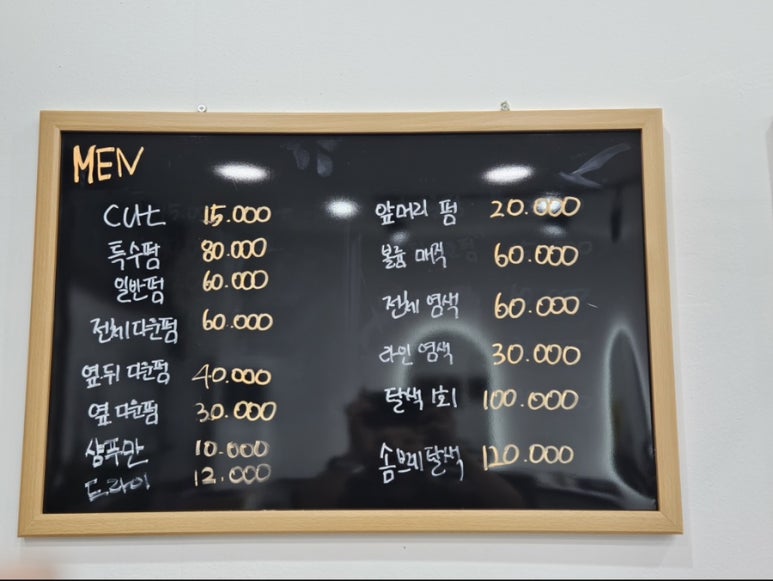 MEN
Cut 15.000
특수펌 80.000
일반펌 60.000
전체다운펌 60.000
옆뒤 다운펌 40.000
옆 다운펌 30.000
샴푸만 10.000
드라이 12.000
앞머리 펌 20.000
볼륨 매직 60.000
전체 염색 60.000
라인 염색 30.000
탈색 1회 100.000
솜브레탈색 120.000